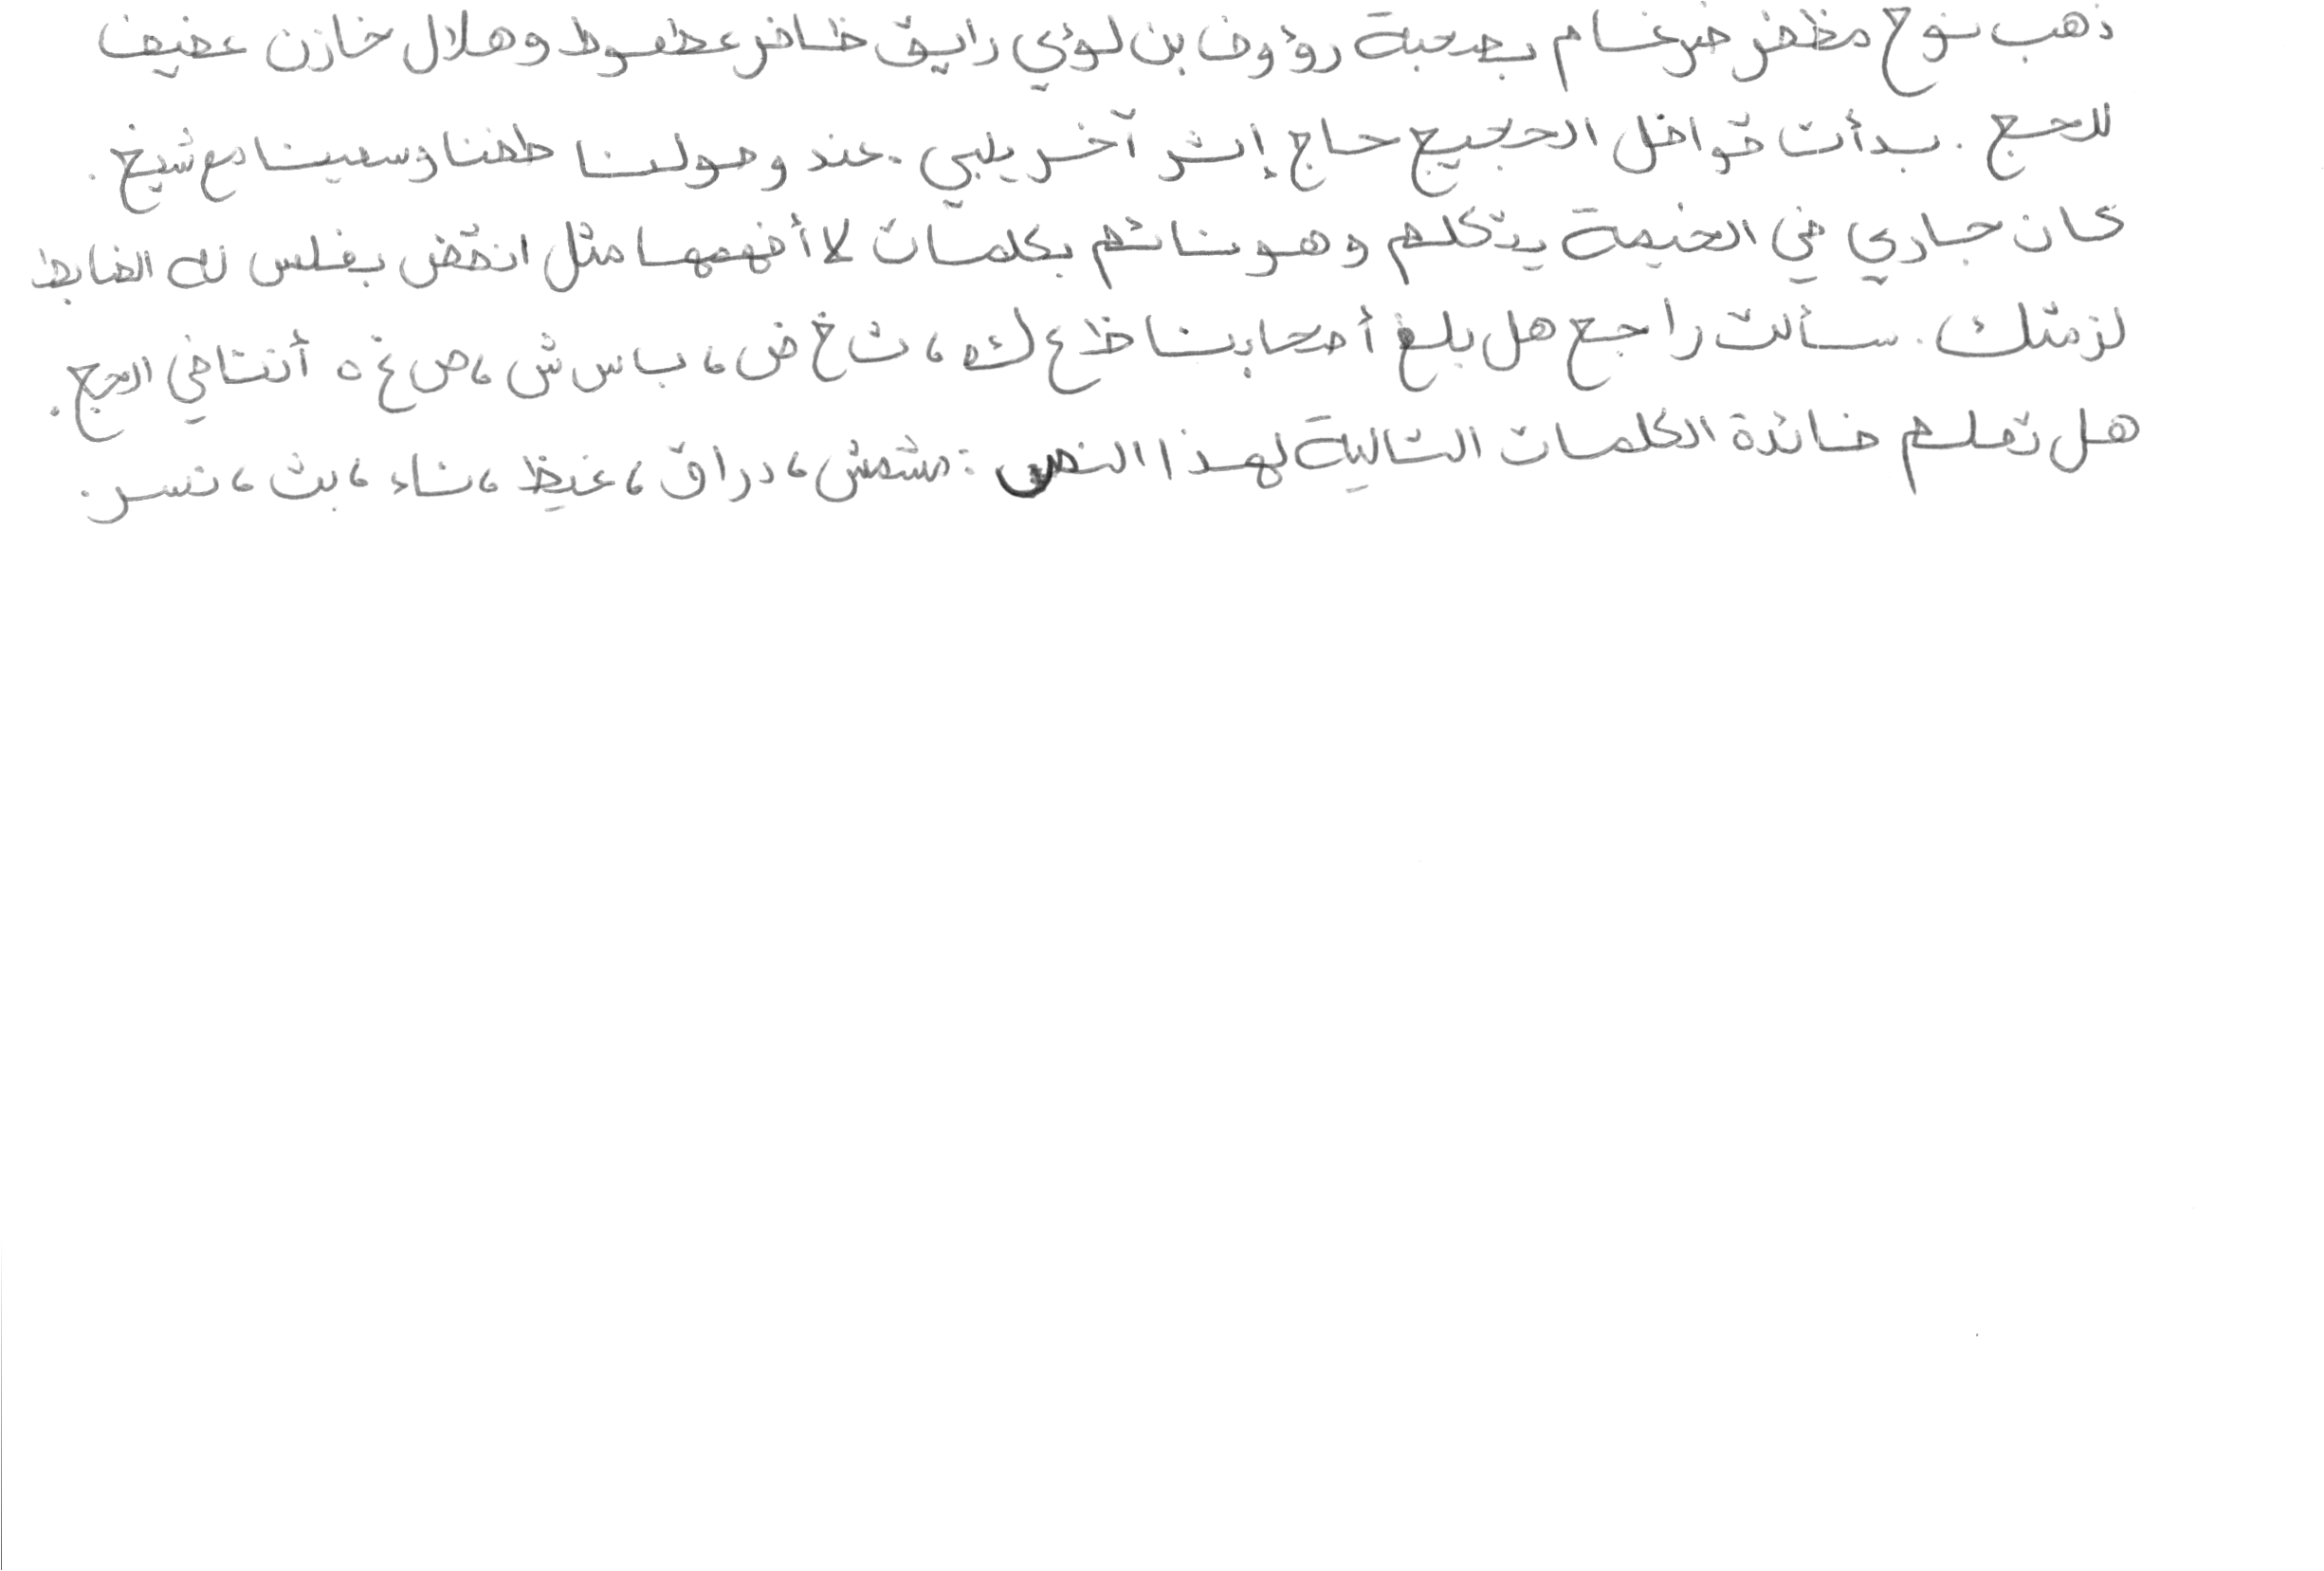 ذهب نوح مظفر ضرغام بصحبة رؤوف بن لؤي رايق ظافر عظفوظ وهلال خازن عفيف
للحج . بدأت قوافل الحجيج حاج إثر آخر يلبي . عند وصولنا طفنا وسعينا مع شيخ .
كان جاري في الخيمة يتكلم وهو نائم بكلمات لا أفهمها مثل انقض بفلس لله الضابط
لزمتك . سألت راجع هل بلغ أصحابنا ظ ع ك ه ، ث خ ض ، ب س ش ، ص غ ه أثنا في الحج .
هل تعلم فائدة الكلمات التالية لهذا النص : مشمش ، دراق ، غيظ ، ناء ، بث ، تسر .